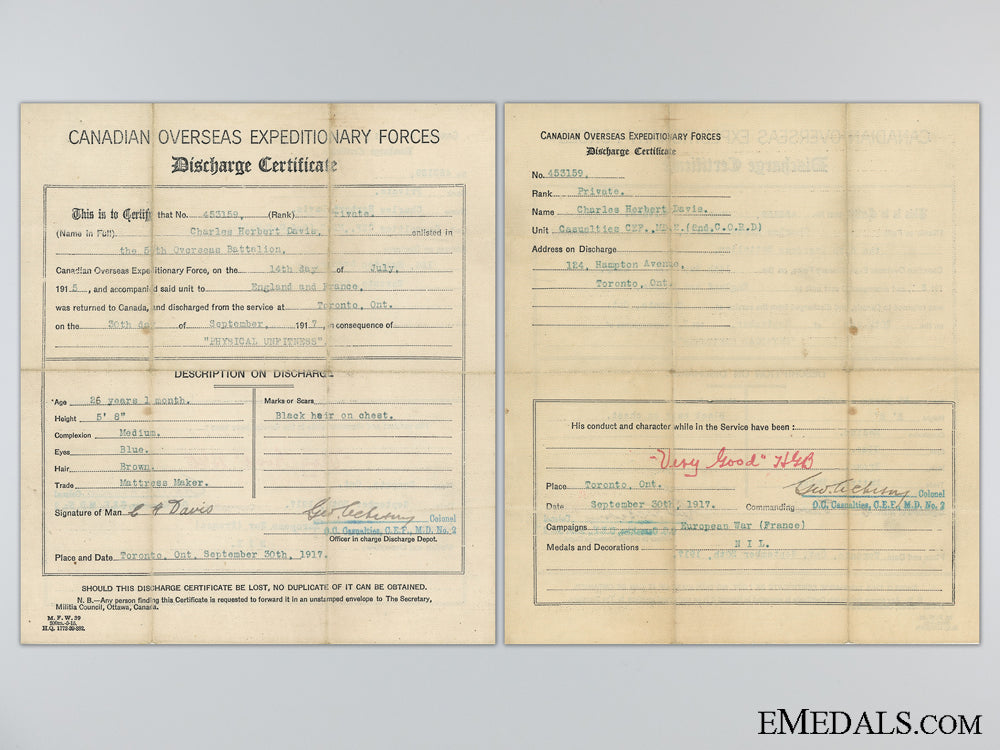 CANADIAN OVERSEAS EXPEDITIONARY FORCES
Discharge Certificate
This is to Certify that No. 453159, (Rank) Private.
(Name in Full) Charles Herbert Davis, enlisted in
the 58th Overseas Battalion,
Canadian Overseas Expeditionary Force, on the 14th day of July,
1915, and accompanied said unit to England and France,
was returned to Canada, and discharged from the service at Toronto, Ont.
on the 30th day of September, 1917, in consequence of
"PHYSICAL UNFITNESS".
DESCRIPTION ON DISCHARGE
Age 26 years 1 month.
Height 5' 8"
Complexion Medium.
Eyes Blue.
Hair Brown.
Trade Mattress Maker.
Marks or Scars
Black hair on chest.
Signature of Man C H Davis
Colonel
O.C. Casualties, C.E.F., M.D. No. 2
Officer in charge Discharge Depot.
Place and Date Toronto, Ont. September 30th, 1917.
SHOULD THIS DISCHARGE CERTIFICATE BE LOST, NO DUPLICATE OF IT CAN BE OBTAINED.
N. B.—Any person finding this Certificate is requested to forward it in an unstamped envelope to The Secretary,
Militia Council, Ottawa, Canada.
M. F. W. 39
H.Q. 1772-39-882.
CANADIAN OVERSEAS EXPEDITIONARY FORCES
Discharge Certificate
No. 453159,
Rank Private.
Name Charles Herbert Davis.
Unit Casualties CEF., (2nd.C.O.R.D)
Address on Discharge
124, Hampton Avenue,
Toronto, Ont.
His conduct and character while in the Service have been :
"Very Good" HGB
Place Toronto, Ont.
Date September 30th, 1917.
Commanding
Colonel
O.C. Casualties, C.E.F., M.D. No. 2
Campaigns European War (France)
Medals and Decorations NIL.
EMEDALS.COM